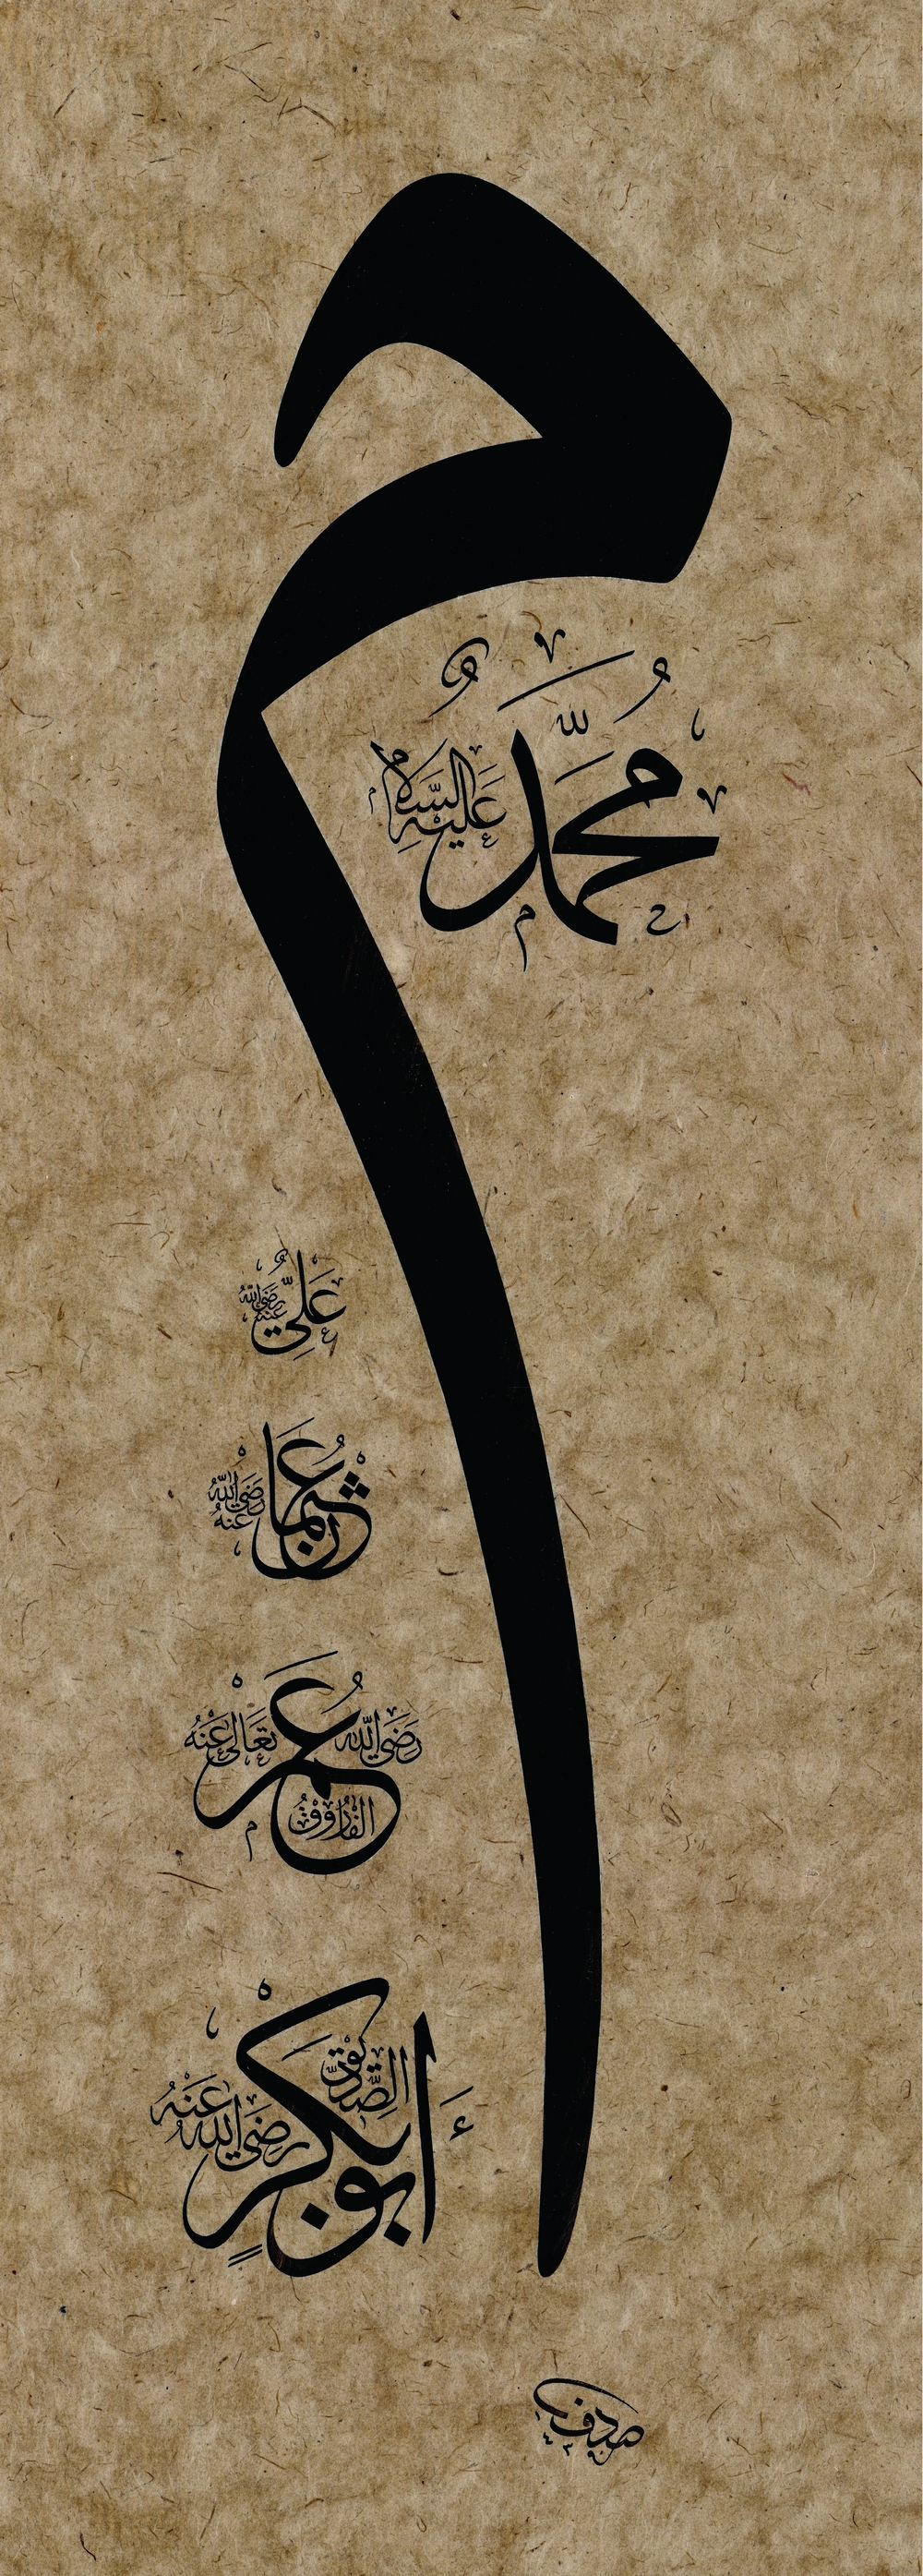 م
مُحَمَّدٌ عَلَيْهِ السَّلَام
عَلِيٌّ رَضِيَ اللهُ عَنْهُ
عُثْمَان رَضِيَ اللهُ عَنْهُ
عُمَرُ الفَارُوقُ رَضِيَ اللهُ تَعَالَى عَنْهُ
أَبُو بَكْرٍ الصِّدِّيقُ رَضِيَ اللهُ عَنْهُ